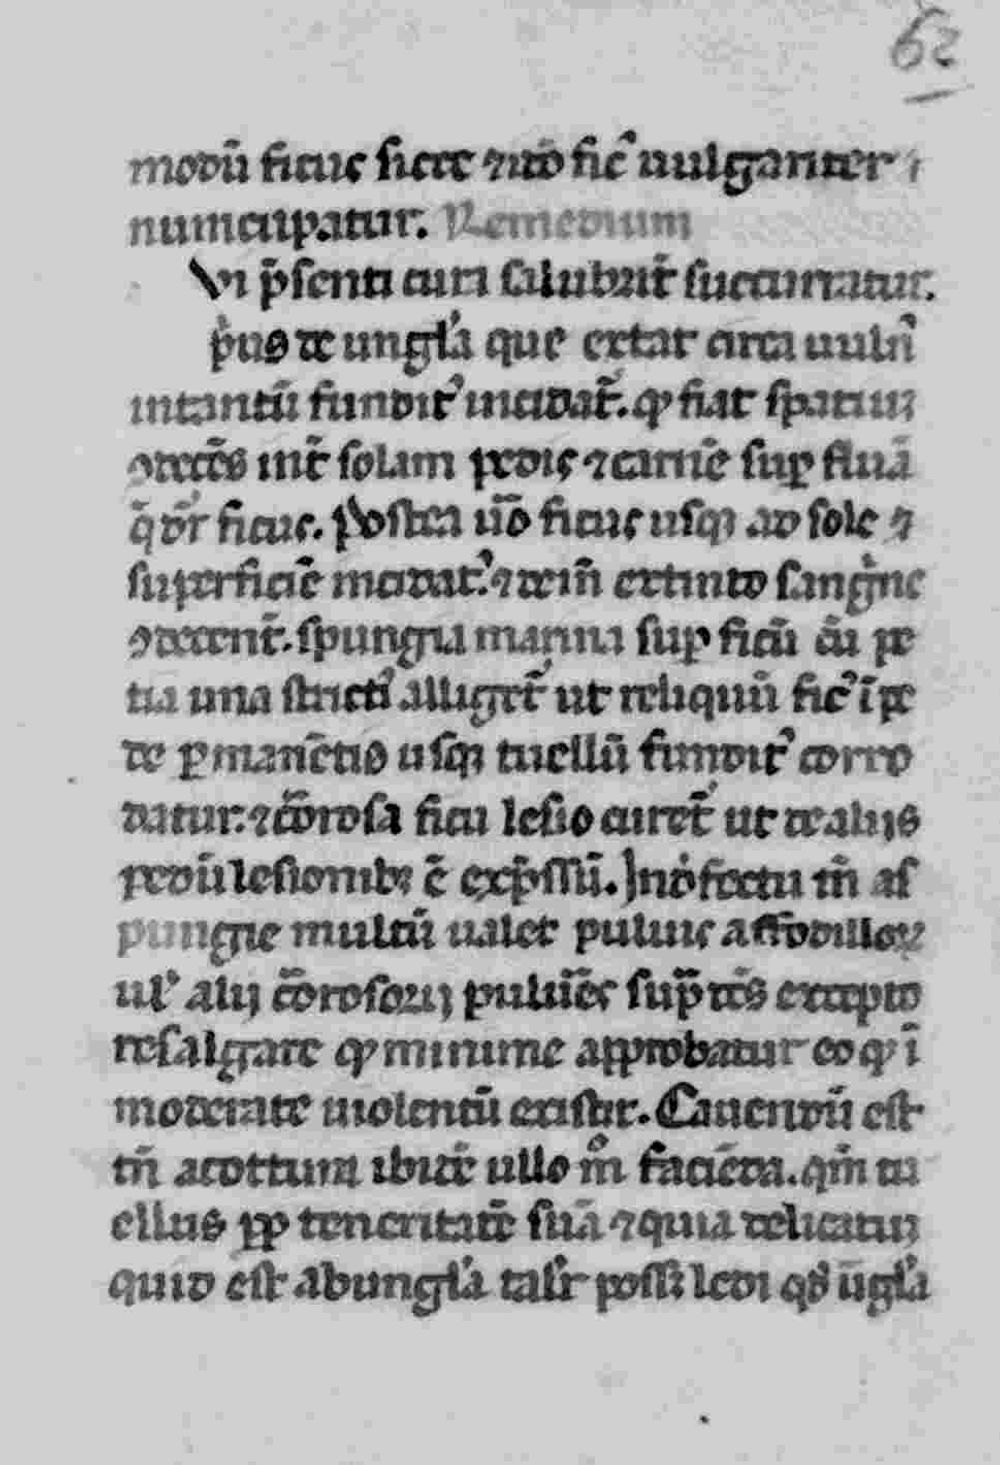 62
modū ficus sicce ⁊ iō fic̄ uulgariter
nuncupatur. Remedium
Cui p̄senti cura salubrit̄ succurratur.
p̓us de ungl̓a que extat circa uuln̄
intantū fundit᾽ incidat̄. ꝙ fiat spatiū
ꝯdecēs int̄ solam pedis ⁊ carnē suꝑfluā
q̄ dr̄ ficus. Postea uō ficus usqꝫ ad sole ⁊
superficiē incidat᾽. ⁊ deīn extincto sang̓ne
ꝯdecent̄. spungia marina suꝑ ficū cū pe
tia una strict᾽ alliget̄ ut reliquū fic᾽ ī pe
de ꝑmanētis usqꝫ tuellū fundit᾽ corro
datur. ⁊ c̄orosa ficu lesio curet̄ ut de aliis
pedū lesionibꝫ ē exp̄ssū. In defectu tn̄ as
pungie multū ualet puluis affodilloꝝ
ul᾽ alij c̄orosoruꝫ pulūes sup̄ dc̄s excepto
resalgare ꝙ minime approbatur eo ꝙ ī
moderate uiolentū existit. Cauendū est
tn̄ a cottura ibidē ullo mº faciēda. qm̄ tu
ellus ꝓp teneritatē suā ⁊ quia delicatuꝫ
quid est ab ungl̓a talr̄ poss; ledi qđ ūgl̓a